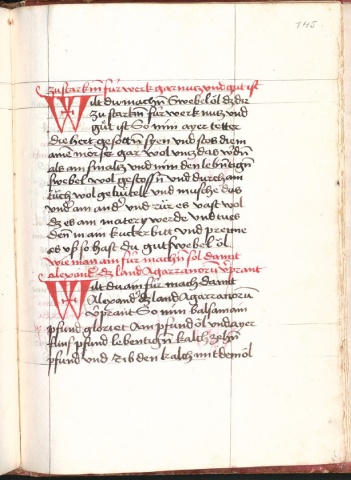 145
zu starkm fúr werk gar nutz und gůt ist
Wilt du machn Swebel öl dz dir
zu starkm fúr werk nutz und
gůt ist So nim ayer tetter
die hert gesottn syen und stos die in
ainem mörser gar wol untz das werdn
als ain smaltz und nim den lebntign
swebel wol gestossn und durch ain
tůch wol gebútelt und musche das
under ain ander und rúr es vast wol
dz es ain matery werde und tues
den in ain kucurbitt und prenne
es us so hast du gut swebel öl
wie man ain fúr machn sol damit
alexander dz land Agarranoru verprant
Wilt du ain fúr mach damit
Alexander dz land Agarranoru
verprant So nim balsamam
pfund gloriet Ain pfund öl und ayer
fúnf pfund lebentign kalch zehn
pfund und Rib den kalch mit dem öl